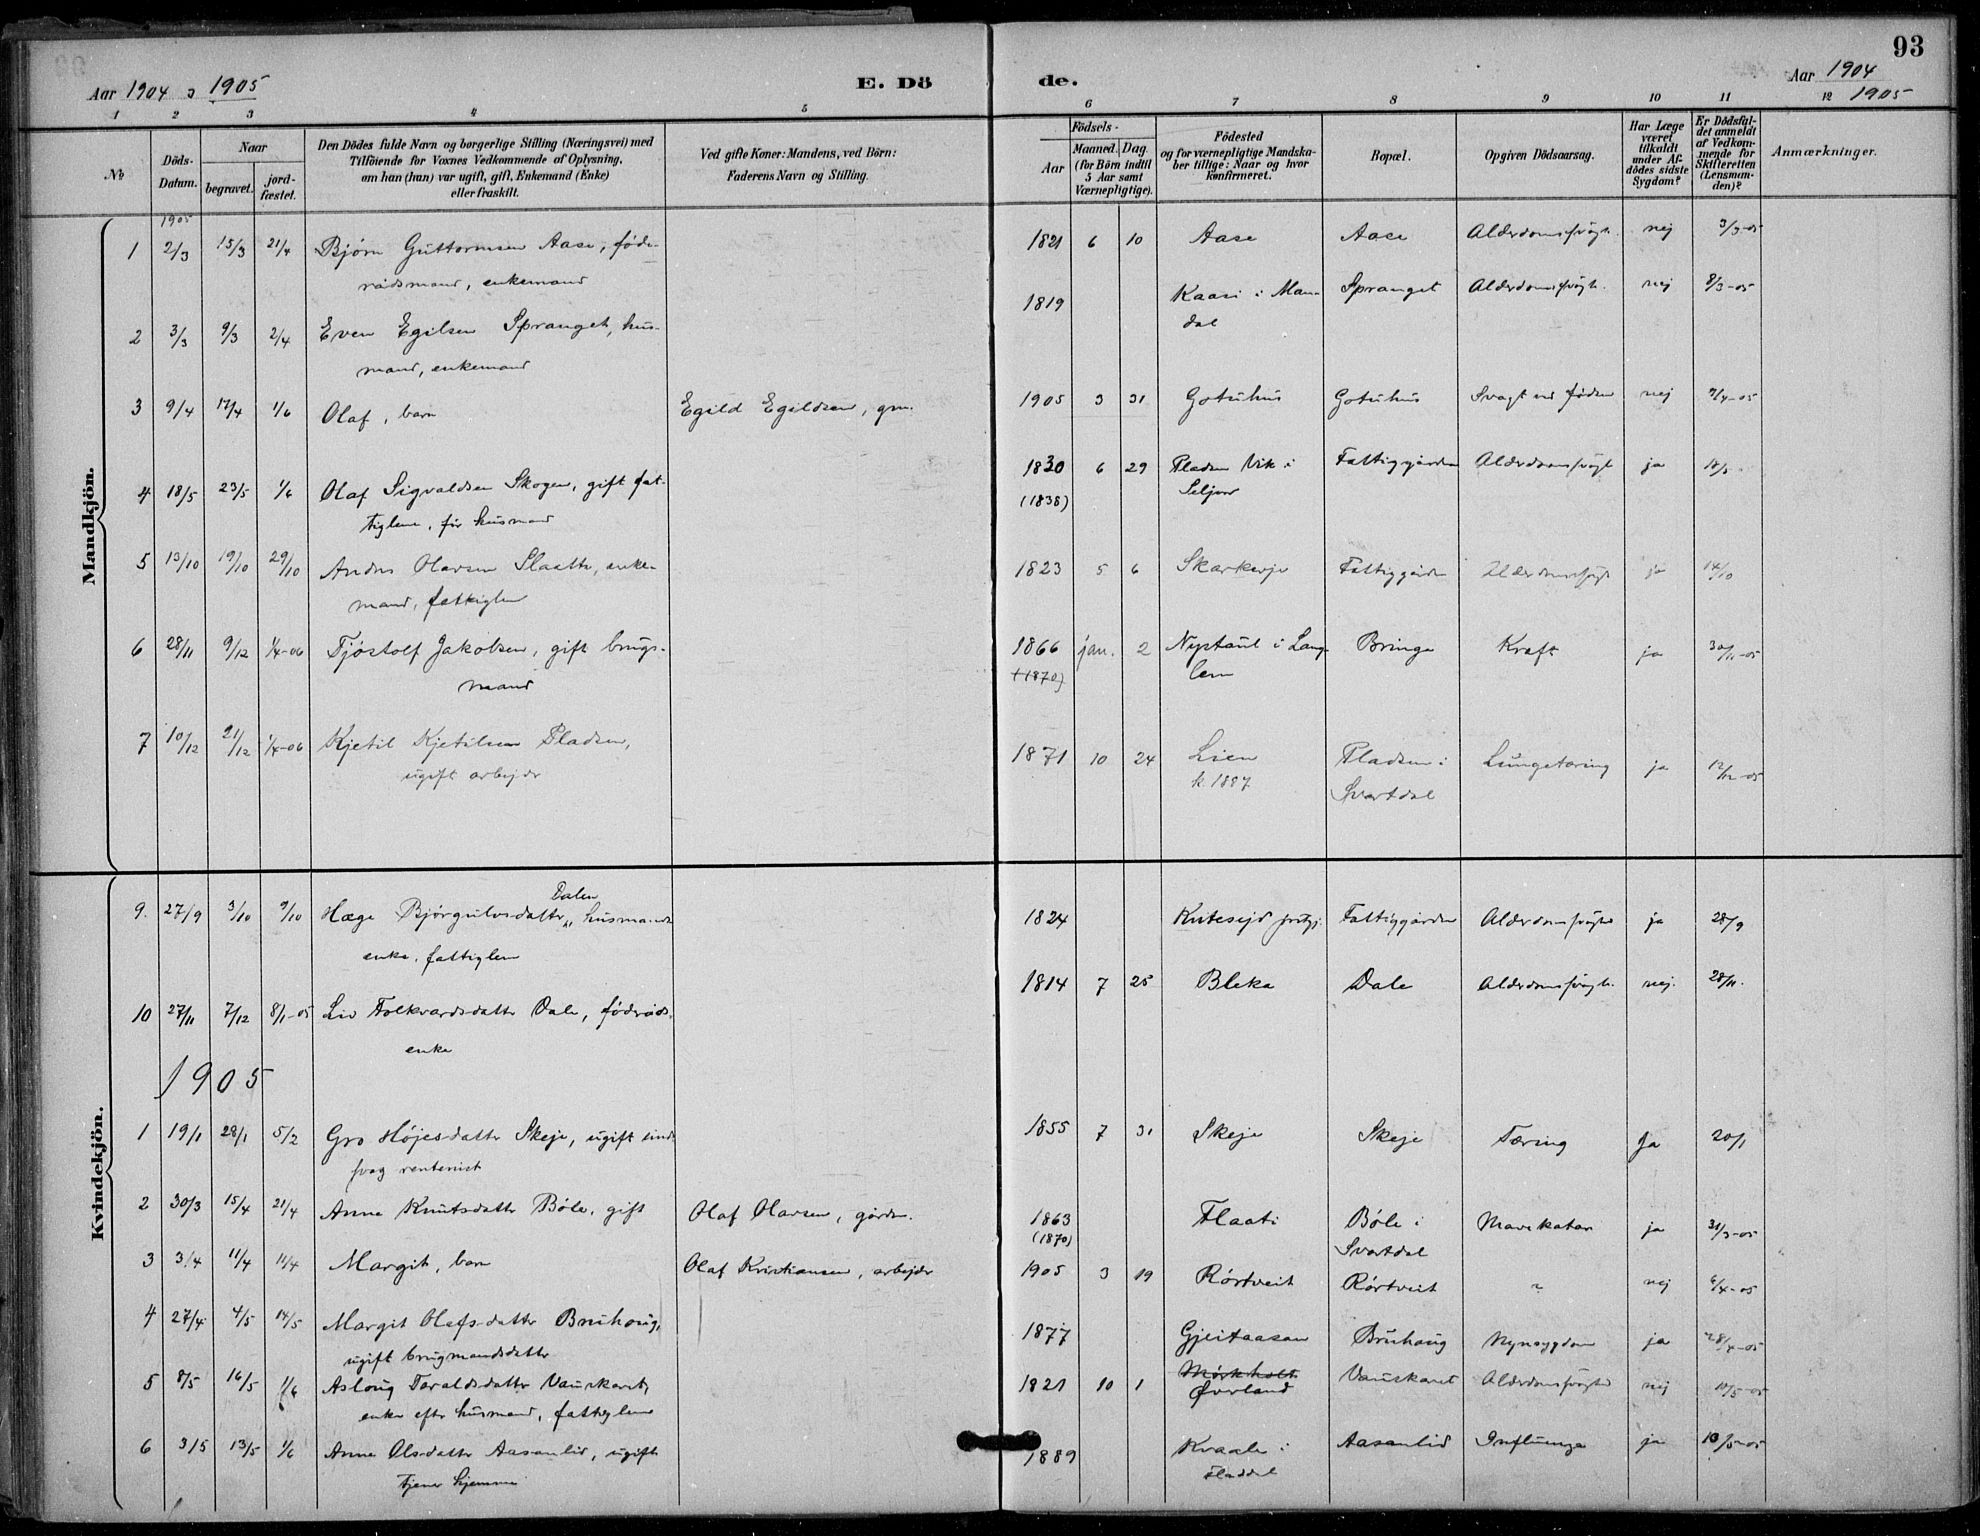 93
Aar 1904 o 1905
E. Dö
de.
Aar 1904
1905
1 2 3 4 5 6 7 8 9 10 11 12
No
Döds-Datum.
Naar
begravet.
jord-fæstet.
Den Dödes fulde Navn og borgerlige Stilling (Næringsvei) med
Tilföiende for Voxnes Vedkommende af Oplysning,
om han (hun) var ugift, gift, Enkemand (Enke)
eller fraskilt.
Ved gifte Koner: Mandens, ved Börn:
Faderens Navn og Stilling.
Födsels-
Aar
Maaned. Dag.
(for Börn indtil
5 Aar samt
Værnepligtige).
Födested
og for værnepligtige Mandska-
ber tillige: Naar og hvor
konfirmeret.
Bopæl.
Opgiven Dödsaarsag.
Har Læge
været
tilkaldt
under Af-
dödes sidste
Sygdom?
Er Dödsfal-
det anmeldt
af Vedkom-
mende for
Skifteretten
(Lensman-
den)?
Anmærkninger.
Mandkjön.
1905
1 2/3 15/3 21/4 Bjørn Guttormsen Aase,føde- 1821 6 10 Aase Aase Alderdomssvagh. nej 3/3-05
raadsmand, enkemand
2 3/3 9/3 2/4 Even Egilsen Spranget, hus- 1819 Kaasi i Man- Spranget Alderdomssvagh. nej 8/3-05
mand, enkemand dal
3 9/4 17/4 1/6 Olaf, barn Egild Egildsen, gm. 1905 3 31 Gotuhus Gotuhus Svagt ved fødsen nej 9/4-05
4 18/5 23/5 1/6 Olaf Sigvaldsen Skogen, gift fat- 1830 6 29 Pladsen Vik i Fattiggården Alderdomssvagh ja 18/5
tiglem, før husmand (1838) Seljord
5 13/10 19/10 29/10 Anders Olavsen Slaatte, enke- 1823 5 6 Skarkerje Fattiggården Alderdomssvagh ja 14/10
mand, fattiglem
6 28/11 9/12 1/4-06 Tjøstolf Jakobsen, gift brugs- 1866 jan. 2 Nystaul i Lang- Bringe Kræft ja 30/11-05
mand (1870) lem
7 10/12 21/12 1/4-06 Kjetil Kjetilsen Pladsen, 1871 10 24 Lien Pladsen i Lungetæring ja 12/12-05
ugift arbejder k. 1887 Svartdal
Kvindekjön.
9. 27/9 3/10 9/10 Hæge Bjørgulvsdatter Dalen, husmands 1824 Kutesejd Fattiggården Alderdomssvaghed ja 28/9
enke, fattiglem
10 27/11 7/12 8/1-05 Liv Folkvardsdatter Dale, föderåds- 1814 7 25 Bleka Dale Alderdomssvagh. nej. 28/11.
enke
1905
1 19/1 28/1 5/2 Gro Højesdatter Skeje, ugift sind- 1855 7 31 Skeje Skeje Tæring Ja 20/1
svag rentenist
2 30/3 15/4 21/4 Anne Knutsdatter Bøle, gift Olaf Olavsen, gårdm. 1863 Flaati Bøle i Mavekatar ja 31/3-05
(1870) Svartdal
3 3/4 11/4 11/4 Margit, barn Olaf Kristiansen, arbejder 1905 3 19 Rørtveit Rørtveit ? nej 6/4-05
4 27/4 4/5 14/5 Margit Olafsdatter Bruhaug, 1877 Gjeitaasan Bruhaug Nyresygdom ja 28/4-05
ugift brugmandsdatter
5 8/5 16/5 1/6 Aslaug Taraldsdatter Vauskaret, 1821 10 1 Mørkholt Vauskaret Alderdomssvaghed nej 10/5-05
enke efter husmand, fattiglem Øverland
6 3/5 13/5 1/6 Anne Olsdatter Aasanlid, ugift 1889 Kvaale i Aasanlid Influenza ja 13/5-05
tjener hjemme Fladdal